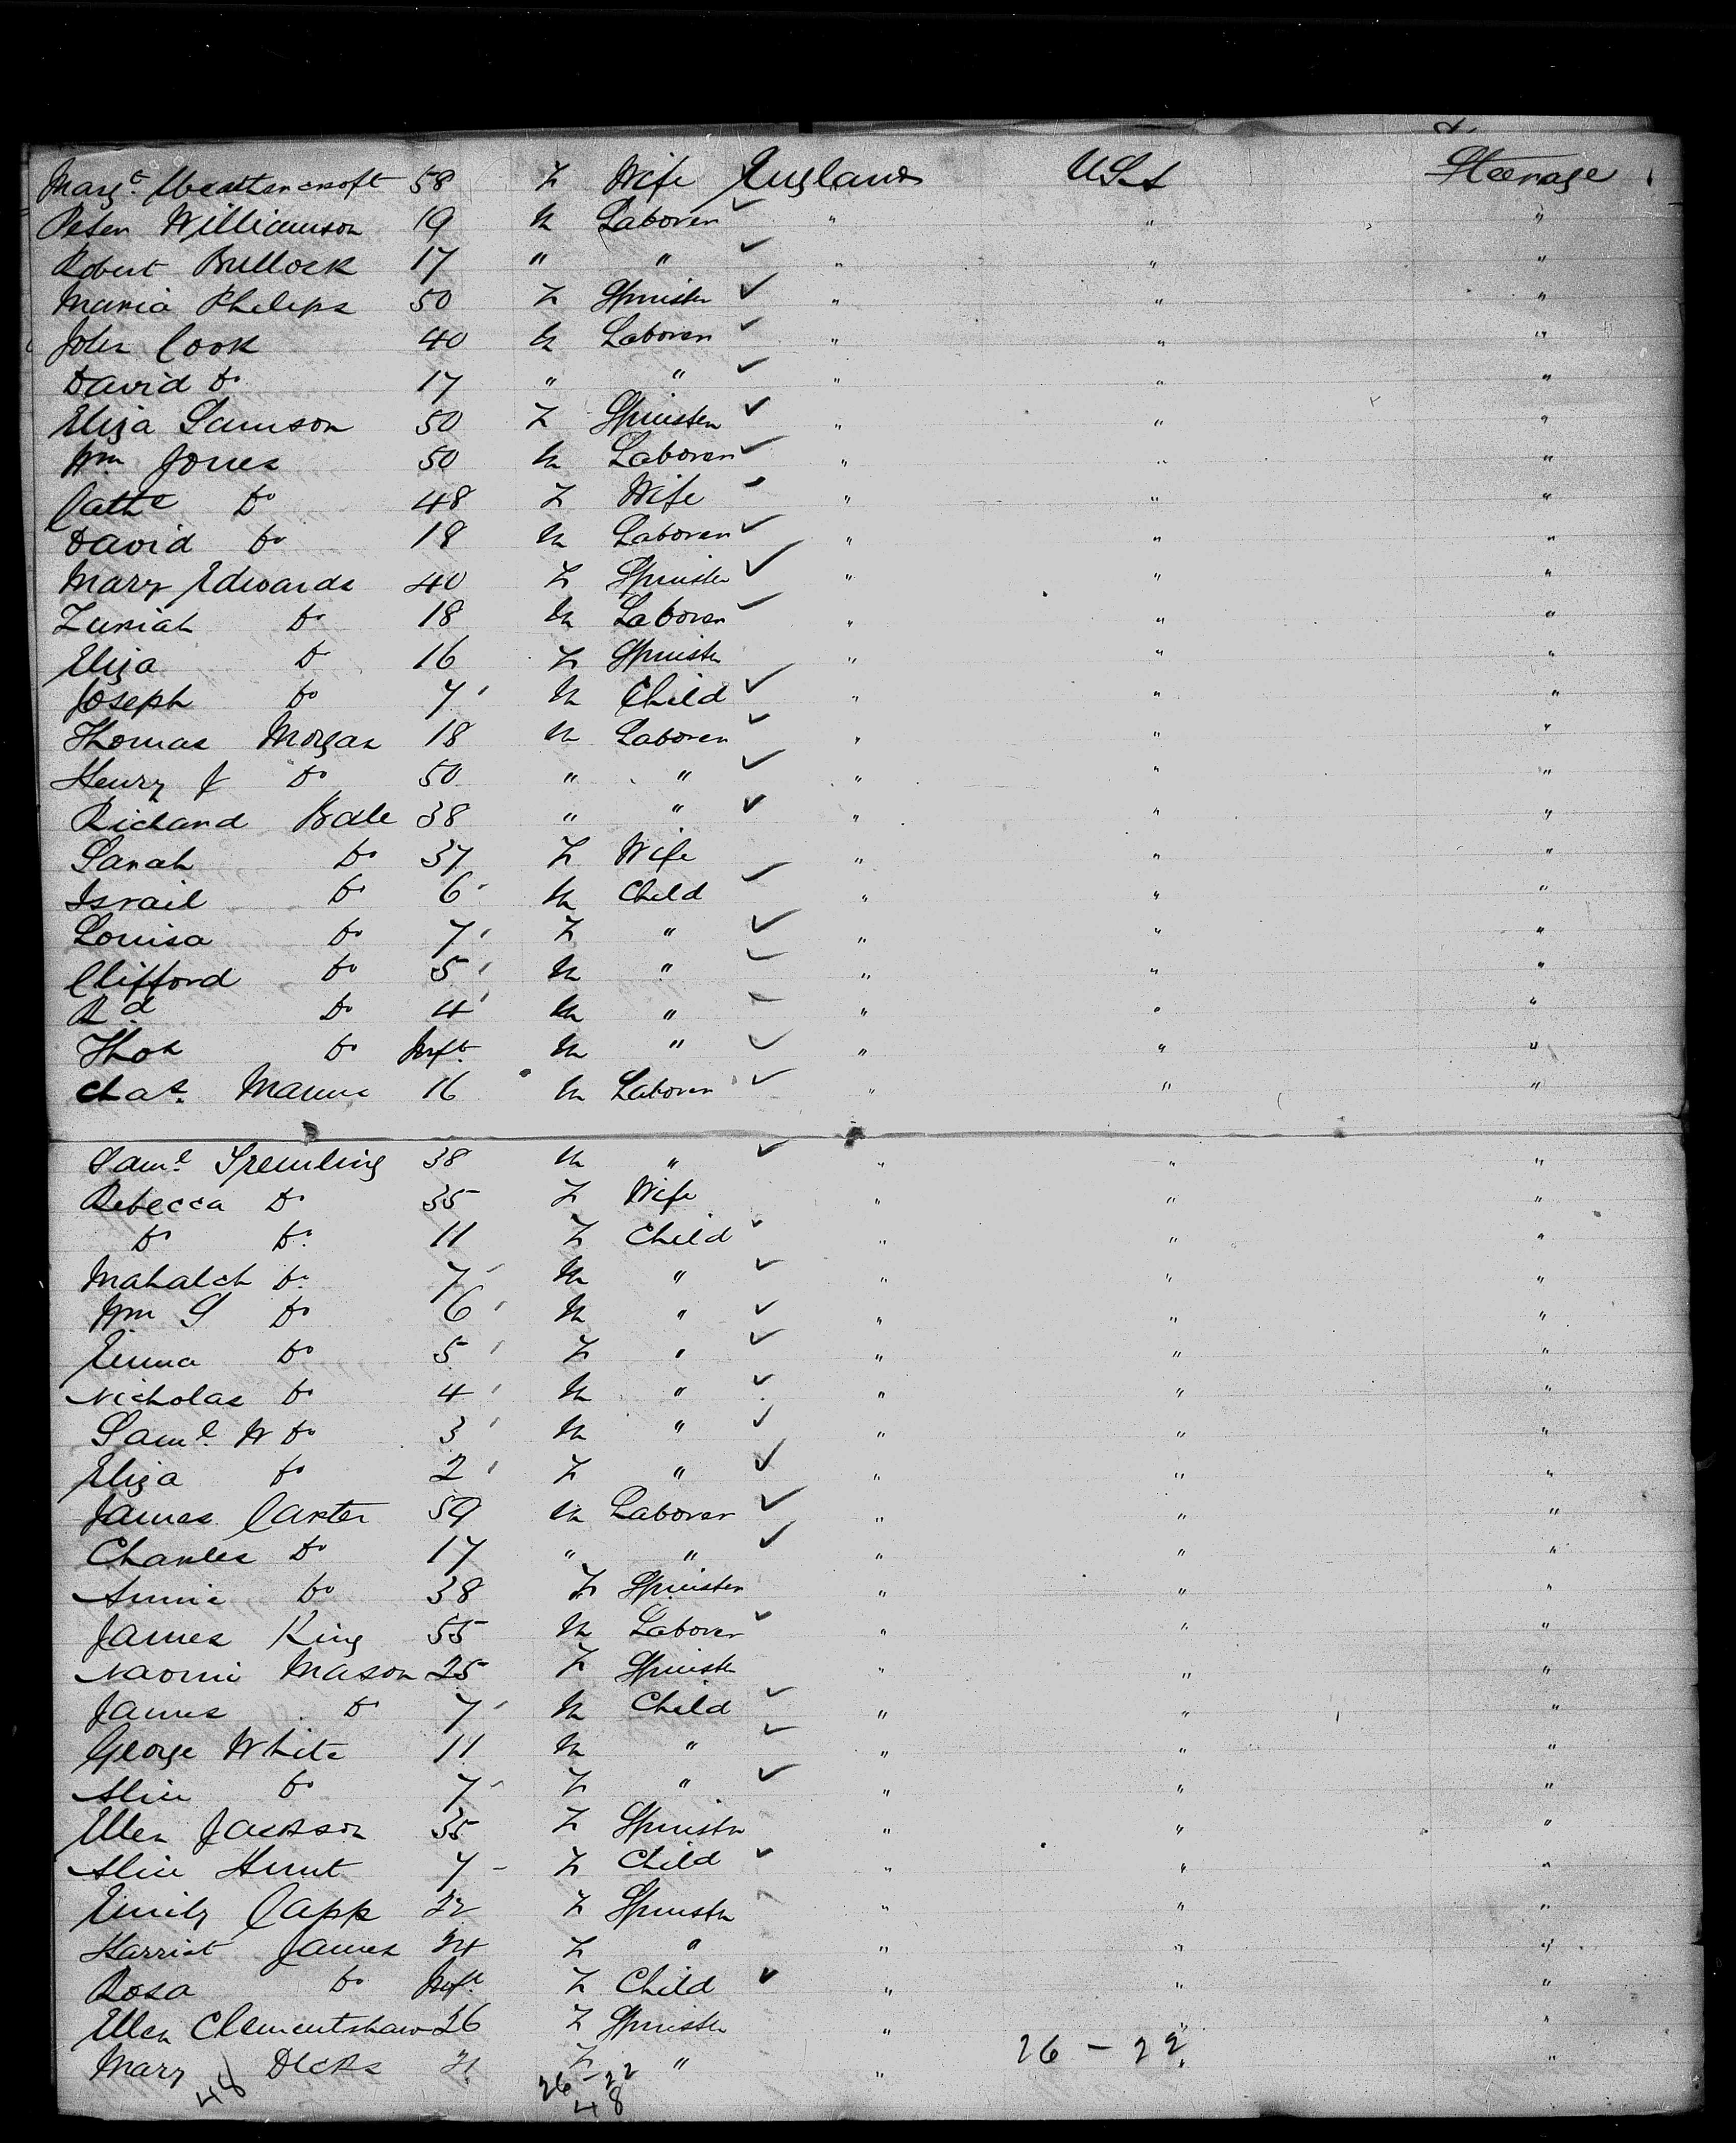 Margt. Weathencroft 58 F Wife England USA Steerage
Peter Williamson 19 M Laborer " " "
Robert Bullock 17 " " " " "
Maria Phelips 50 F Spinster " " "
John Cook 40 M Laborer " " "
David Do 17 " " " " "
Eliza Samson 50 F Spinster " " "
Wm Jones 50 M Laborer " " "
Cathe Do 48 F Wife " " "
David Do 18 M Laborer " " "
Mary Edwards 40 F Spinster " " "
Zuriah Do 18 M Laborer " " "
Eliza Do 16 F Spinster " " "
Joseph Do 7 M Child " " "
Thomas Morgan 18 M Laborer " " "
Henry J Do 50 " " " " "
Richard Bale 38 " " " " "
Sarah Do 37 F Wife " " "
Israil Do 6 M Child " " "
Louisa Do 7 F " " " "
Clifford Do 5 M " " " "
Rd Do 4 M " " " "
Thos Do Inft. M " " " "
Chas. Manne 16 M Laborer " " "
Saml. Spemling 38 M " " " "
Rebecca Do 35 F Wife " " "
Do Do 11 F Child " " "
Mahalah Do 7 M " " " "
Wm S Do 6 M " " " "
Emma Do 5 F " " " "
Nicholas Do 4 M " " " "
Saml. W Do 3 M " " " "
Eliza Do 2 F " " " "
James Carter 59 M Laborer " " "
Charles Do 17 " " " " "
Annie Do 38 F Spinster " " "
James King 55 M Laborer " " "
Naomi Mason 25 F Spinster " " "
James Do 7 M Child " " "
George White 11 M " " " "
Alice Do 7 F " " " "
Ellen Jackson 35 F Spinster " " "
Alice Hunt 7 F Child " " "
Emily Capp 22 F Spinster " " "
Harriet James 24 F " " " "
Rosa Do Inft. F Child " " "
Ellen Clementshaw 26 F Spinster " " "
Mary Dicks 21 F " " 26 - 22 "
48 26 - 22
48